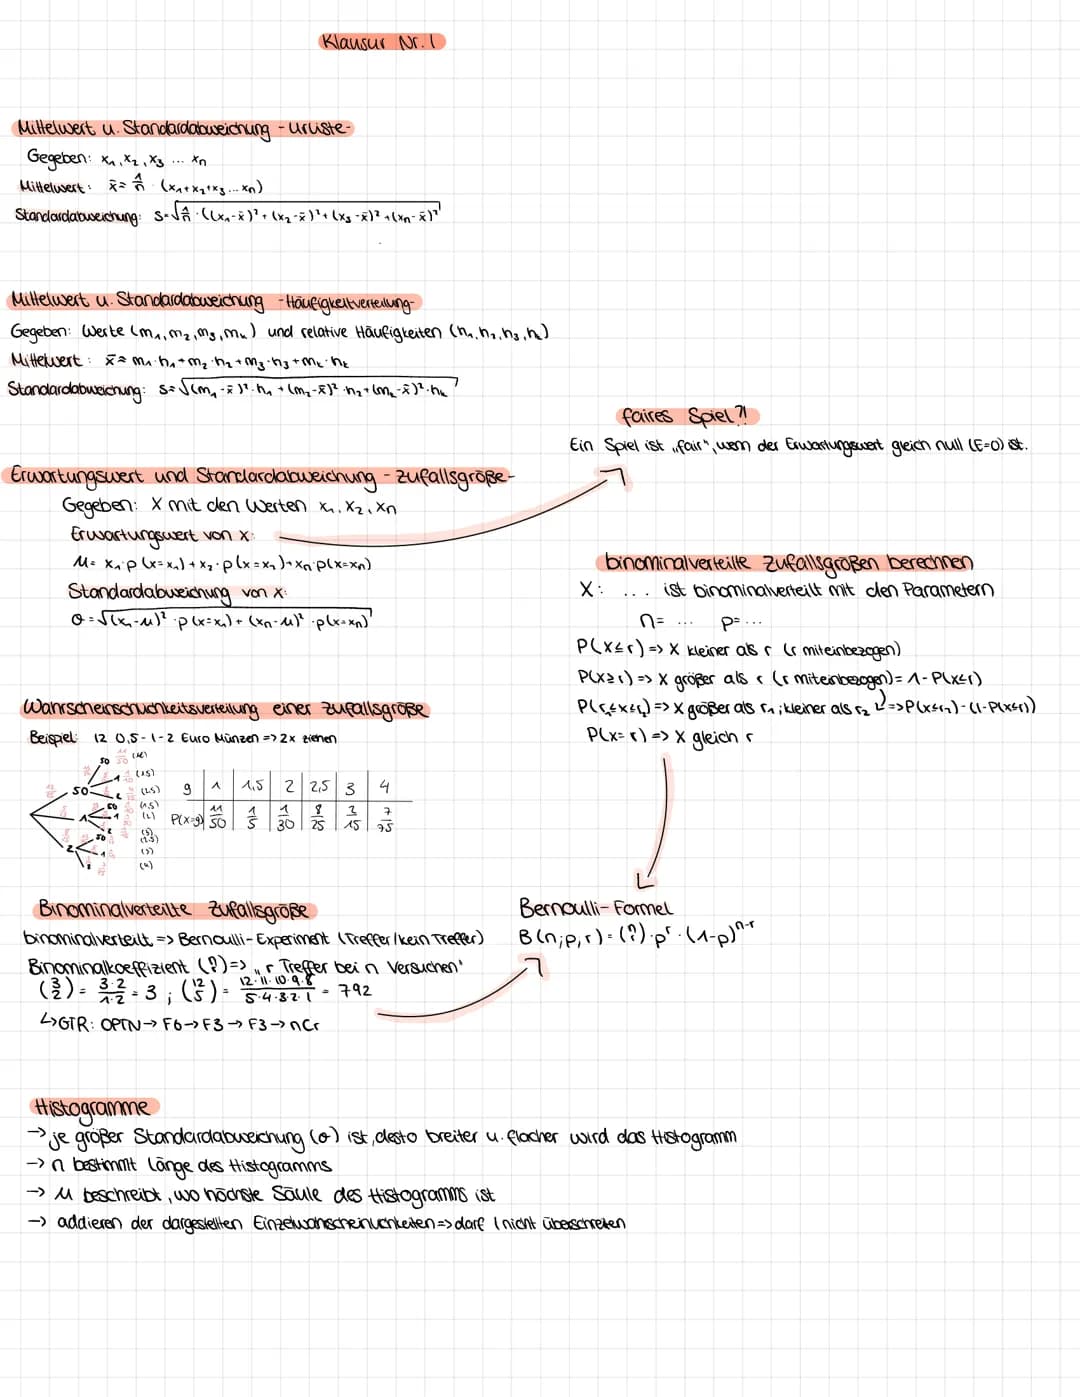 Klausur Nr. 1
Mittelwert u. Standardabweichung - Urliste-
Gegeben: x₁, x₂, x₃ ... xₙ
Mittelwert: x̄ = 1/n · (x₁+x₂+x₃...xₙ)
Standardabweichung: s=√1/n · ((x₁-x̄)² + (x₂-x̄)² + (x₃-x̄)² + (xₙ-x̄)²
Mittelwert u. Standardabweichung -Häufigkeitverteilung-
Gegeben: Werte (m₁, m₂, m₃, mₖ) und relative Häufigkeiten (h₁, h₂, h₃, hₖ)
Mittelwert: x̄ = m₁·h₁+m₂·h₂+m₃·h₃+mₖ·hₖ
Standardabweichung: s=√(m₁-x̄)²·h₁ + (m₂-x̄)²·h₂+(mₖ-x̄)²·hₖ
faires Spiel?!
Ein Spiel ist „fair", wenn der Erwartungswert gleich null (E=0) ist.
Erwartungswert und Standardabweichung - Zufallsgröße-
Gegeben: X mit den Werten x₁, x₂, xₙ
Erwartungswert von X:
μ= x₁·p(x=x₁)+x₂·p(x=x₂)+xₙ·p(x=xₙ)
Standardabweichung von X:
σ=√(x₁-μ)²·p(x=x₁)+(xₙ-μ)²·p(x=xₙ)
binominalverteilte Zufallsgrößen berechnen
X: ... ist binominalverteilt mit den Parametern
n= ... p= ...
P(X≤r) => X kleiner als r (r miteinbezogen)
P(X≥r) => X größer als r (r miteinbezogen) = 1-P(X≤r)
P(r₁≤X≤r₂) => X größer als r₁; kleiner als r₂ => P(X≤r₂)-(1-P(X≤r₁))
P(X=r) => X gleich r
Wahrscheinschuchkeitsverteilung einer Zufallsgröße
Beispiel: 12 0,5-1-2 Euro Münzen => 2x ziehen
50 1 2
50 1 2
50 1 2
g 1 1,5 2 2,5 3 4
P(X=g) 11/50 1/5 1/30 8/25 2/15 7/75
Binominalverteilte Zufallsgröße
binominalverteilt => Bernoulli-Experiment (Treffer/kein Treffer)
Binominalkoeffizient (n/r) => „r Treffer bei n Versuchen"
(3/2) = 3·2/1·2 = 3 ; (12/5) = 12·11·10·9·8/5·4·3·2·1 = 792
↳GTR: OPTN → F6 → F3 → F3 → nCr
Bernoulli-Formel
B(n;p,r) = (n/r)·pʳ·(1-p)ⁿ⁻ʳ
Histogramme
→ je größer Standardabweichung (σ) ist, desto breiter u. flacher wird das Histogramm
→ n bestimmt Länge des Histogramms
→ μ beschreibt, wo höchste Säule des Histogramms ist
→ addieren der dargestellten Einzelwahrscheinlichkeiten => darf 1 nicht überschreiten